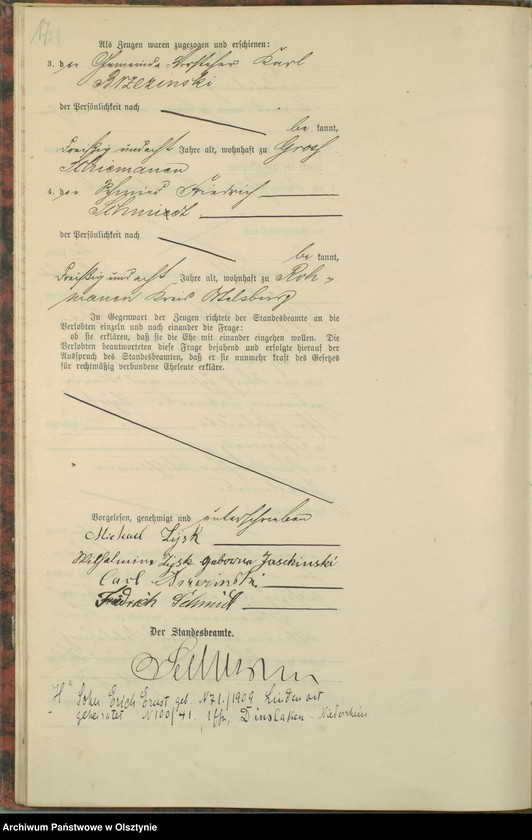 Als Zeugen waren zugezogen und erschienen:
3. der Gemeinde-Vorsteher Karl
Brzezinski
der Persönlichkeit nach
be kannt,
dreißig und acht Jahre alt, wohnhaft zu Groß
Schiemanen
4. der Schmied Friedrich
Schmidt
der Persönlichkeit nach
be kannt,
dreißig und acht Jahre alt, wohnhaft zu Roh-
manen Kreis Ortelsburg
In Gegenwart der Zeugen richtete der Standesbeamte an die
Verlobten einzeln und nach einander die Frage:
ob sie erklären, daß sie die Ehe mit einander eingehen wollen. Die
Verlobten beantworteten diese Frage bejahend und erfolgte hierauf der
Ausspruch des Standesbeamten, daß er sie nunmehr kraft des Gesetzes
für rechtmäßig verbundene Eheleute erkläre.
Vorgelesen, genehmigt und unterschrieben
Michael Zysk
Wilhelmine Zysk geborne Jaschinski
Carl Brzezinski
Friedrich Schmidt
Der Standesbeamte.
Sohn Erich Ernst geb. N 71/1909 Lindenort
geheiratet N 100/41, Dinslaken - Niederrhein
Archiwum Państwowe w Olsztynie